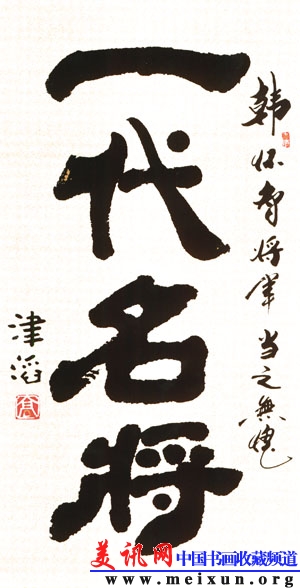 韩怀智将军当之無愧
一代名将
津滔
美讯网 中国书画收藏频道
www.meixun.org